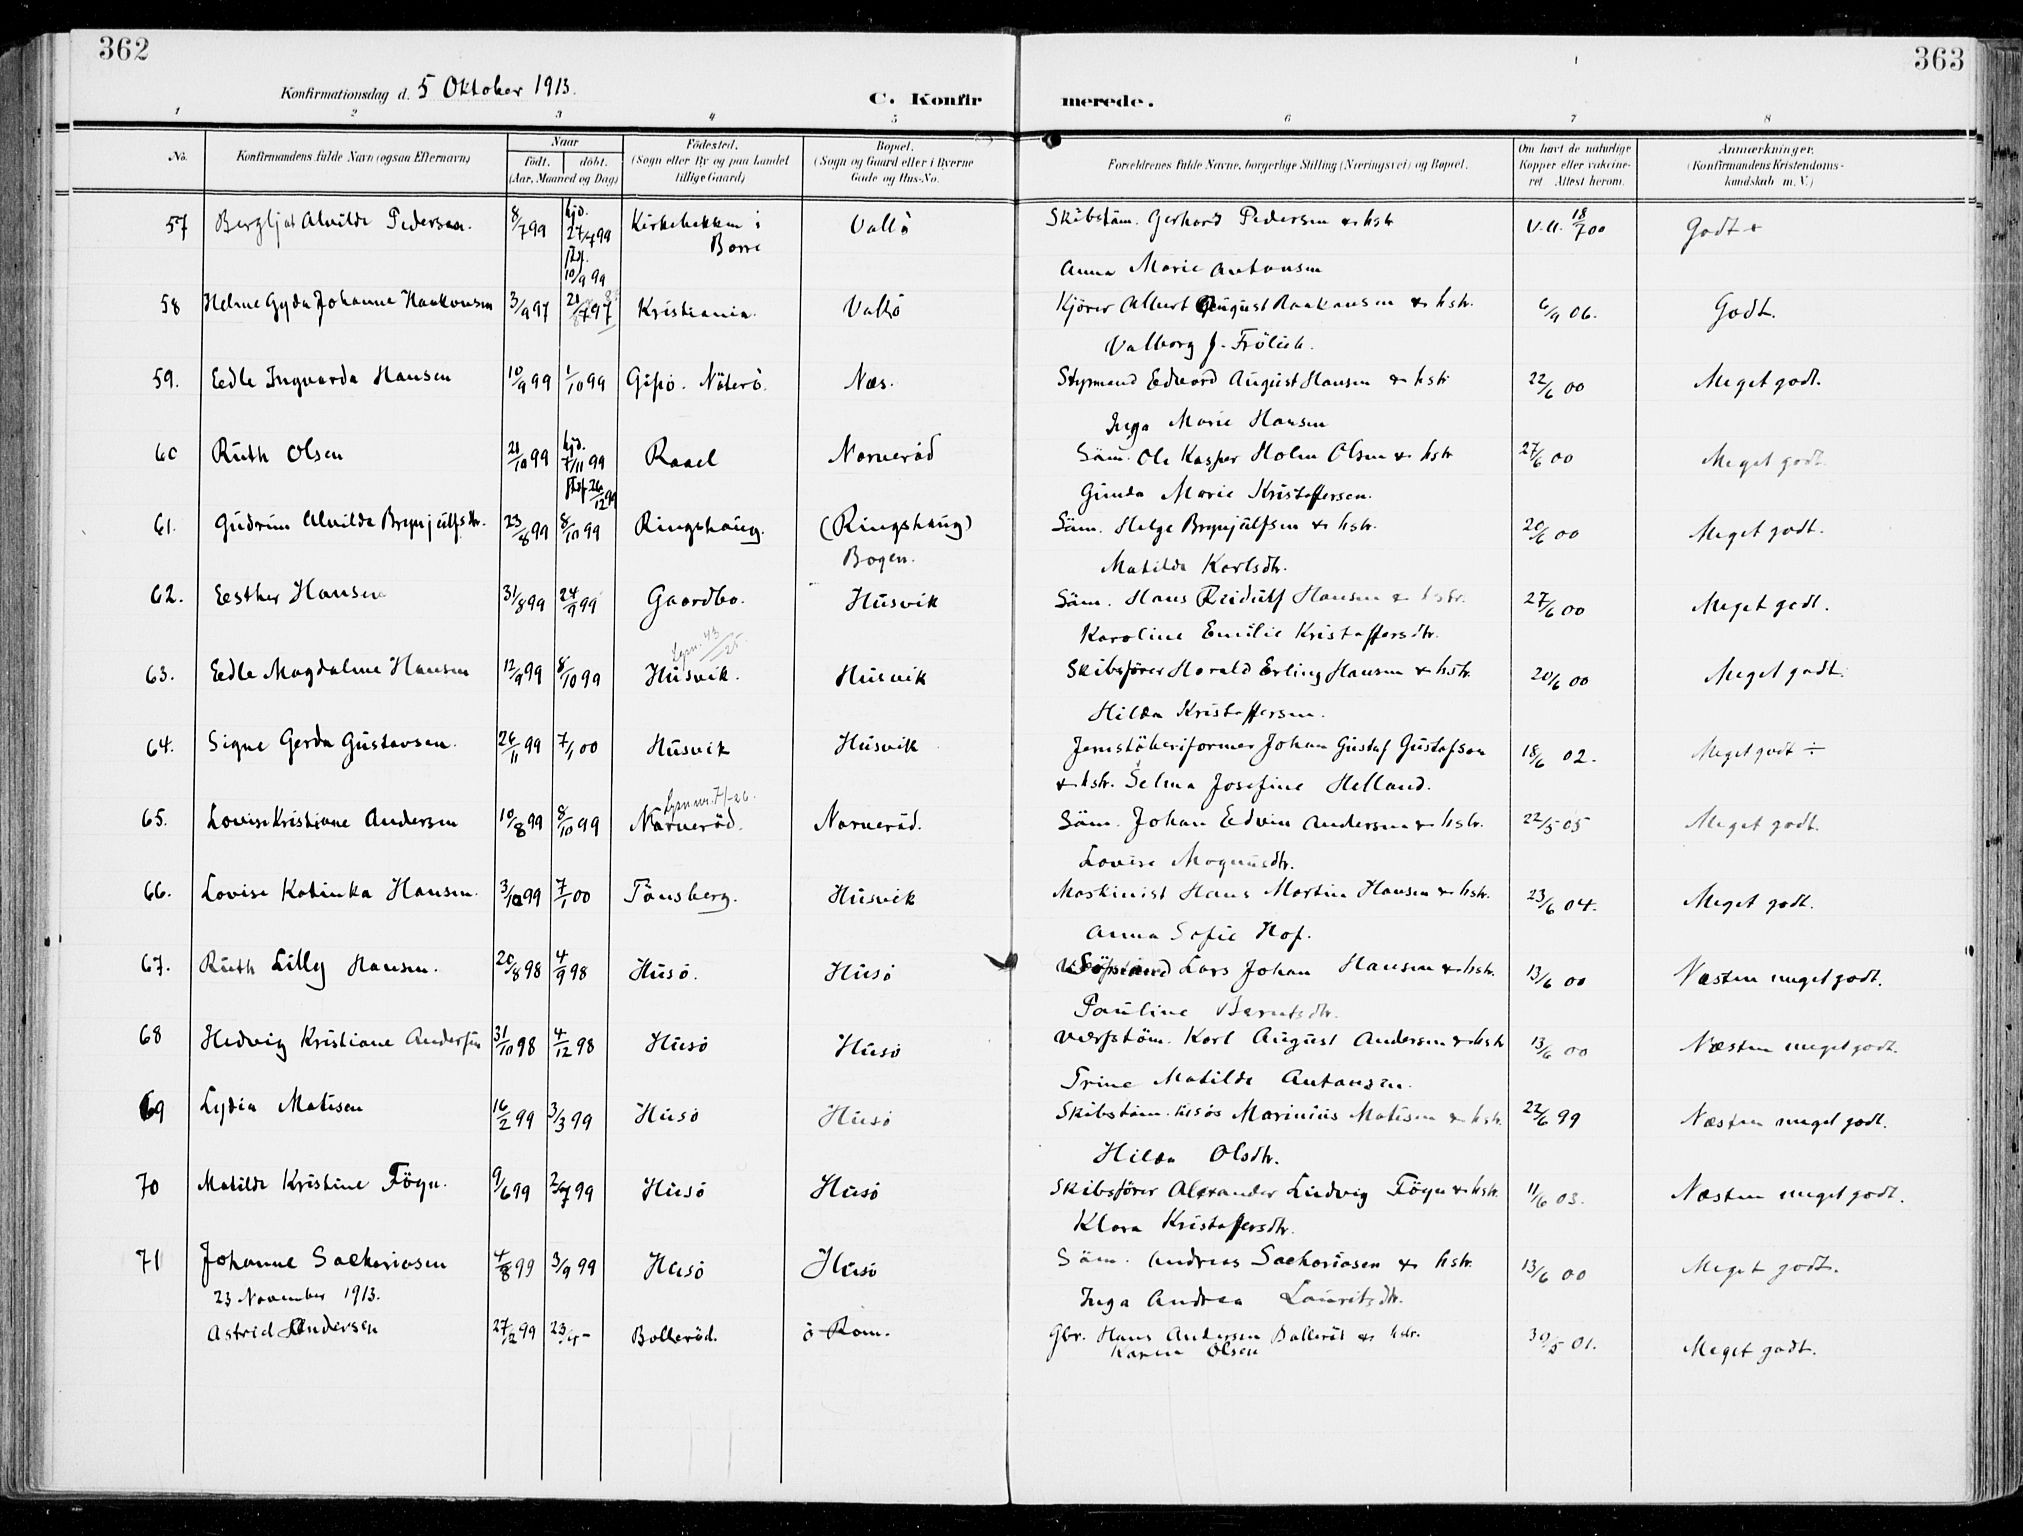 362
363
Konfirmationsdag d. 5 Oktober 1913.
C. Konfirmerede.
1 2 3 4 5 6 7 8
No. Konfirmandens fulde Navn (ogsaa Efternavn) Naar født. døbt. (Aar, Maaned og Dag) Fødested. (Sogn eller By og paa Landet tillige Gaard) Bopæl. (Sogn og Gaard eller i Byerne Gade og Hus-No. Forældrenes fulde Navne, borgerlige Stilling (Næringsvei) og Bopæl. Om havt de naturlige Kopper eller vaccineret Attest herom. Anmærkninger. (Konfirmandens Kristendomskundskab m. V.)
57 Bergljot Alvilde Pedersen. 8/7 99 hjd. 27/7 99 Kirkebakken i Borre Vallö Skibstöm. Gerhard Pedersen & hstr V.A. 18/7 00 Godt +
10/9 99 Anna Marie Antonsen
58 Helene Gyda Johanne Haakonsen 3/9 97 Kristiania. Vallö Kjörer Albert August Haakonsen & hstr. 6/9 06. Godt.
Valborg J. Frölich.
59. Edle Ingvarda Hansen 10/9 99 1/10 99 Gipö. Nöterö. Næs. Styrmand Edvard August Hansen & hstr 22/6 00 Meget godt.
Inga Marie Hansen
60 Ruth Olsen 21/10 99 hjd. 7/11 99 Raael Narveröd Söm. Ole Kasper Holm Olsen & hstr 27/6 00 Meget godt.
26/12 99 Gunda Marie Kristoffersen.
61. Gudrun Alvilda Brynjulfsdtr. 23/8 99 8/10 99 Ringshaug. (Ringshaug) Söm. Helge Brynjulfsen & hstr. 20/6 00 Meget godt.
Bogen. Matilde Karlsdtr.
62. Esther Hansen 31/8 99 24/9 99 Gaardbo. Husvik Söm. Hans Reidulf Hansen & hstr. 27/6 00 Meget godt.
Karoline Emilie Kristoffersdtr.
63. Edle Magdalene Hansen 12/9 99 8/10 99 Husvik. Husvik Skibsförer Harald Erling Hansen & hstr. 20/6 00 Meget godt.
Hilda Kristoffersen.
64. Signe Gerda Gustavsen. 26/11 99 7/1 00 Husvik Husvik Jernstöberiformer Johan Gustaf Gustafson 18/6 02. Meget godt ÷
& hstr. Selma Josefine Helland.
65. Lovise Kristiane Andersen 10/8 99 8/10 99 Narveröd. Narveröd. Söm. Johan Edvin Andersen & hstr. 22/5 05 Meget godt.
Lovise Magnusdtr.
66. Lovise Katinka Hansen. 3/10 99 7/1 00 Tönsberg. Husvik Maskinist Hans Martin Hansen & hstr. 23/6 04. Meget godt.
Anna Sofie Hof.
67. Ruth Lilly Hansen. 20/8 98 4/9 98 Husö. Husö Lars Johan Hansen & hstr. 13/6 00 Næsten meget godt.
Pauline Berntsdtr.
68 Hedvig Kristiane Andersen 31/10 98 4/12 98 Husö Husö Værfstöm. Karl August Andersen & hstr 13/6 00 Næsten meget godt.
Trine Matilde Antonsen.
69 Lydia Matisen 16/2 99 3/3 99 Husö Husö Skibstöm. Marinius Matisen & hstr. 22/6 99 Næsten meget godt.
Hilda Olsdtr.
70 Matilde Kristine Föyn. 9/6 99 2/7 99 Husö Husö Skibsförer Alexander Ludvig Föyn & hstr. 11/6 03. Næsten meget godt.
Klara Kristoffersdtr.
71 Johanne Sackariasen 4/8 99 3/9 99 Husö Husö Söm. Andreas Sackariasen & hstr. 13/6 00 Meget godt.
23 November 1913. Inga Andrea Lauritsdtr.
Astrid Andersen 27/2 99 23/4 - Bolleröd. ö Rom. Gbr. Hans Andersen Bolleröd & hstr. 30/5 01. Meget godt.
Karen Olsen